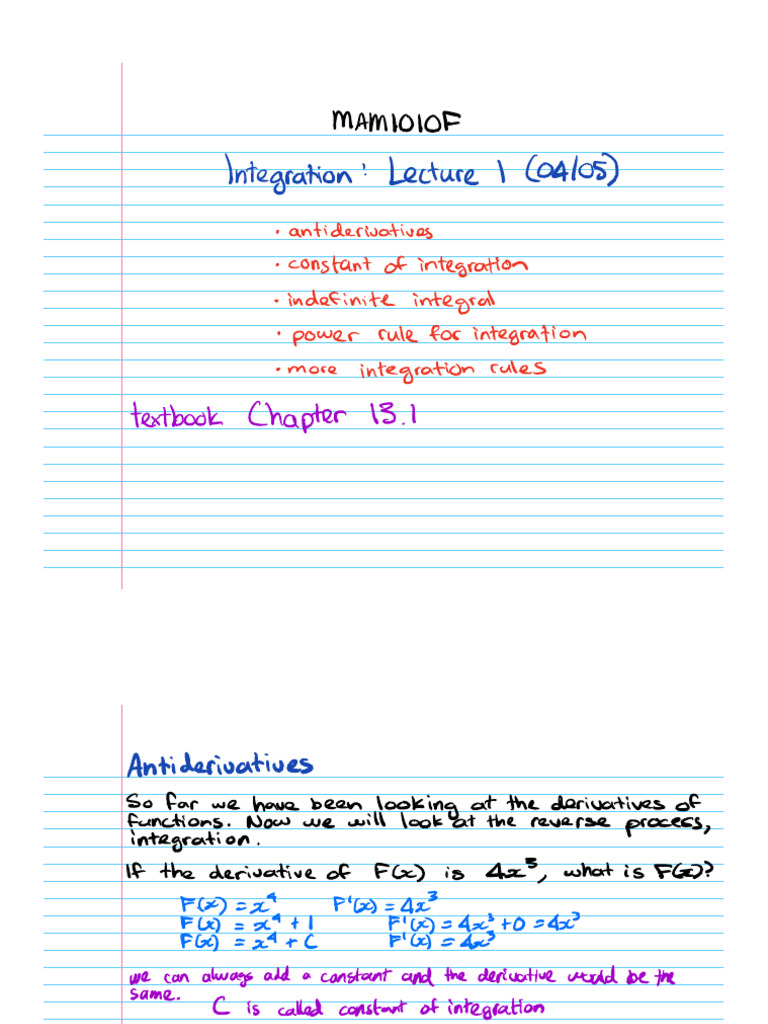 MAM1010F
Integration: Lecture 1 (04/05)
• antiderivatives
• constant of integration
• indefinite integral
• power rule for integration
• more integration rules
textbook Chapter 13.1
Antiderivatives
So far we have been looking at the derivatives of
functions. Now we will look at the reverse process,
integration.
If the derivative of F(x) is 4x³, what is F(x)?
F(x) = x⁴ F'(x) = 4x³
F(x) = x⁴ + 1 F'(x) = 4x³ + 0 = 4x³
F(x) = x⁴ + C F'(x) = 4x³
we can always add a constant and the derivative would be the
same.
C is called constant of integration